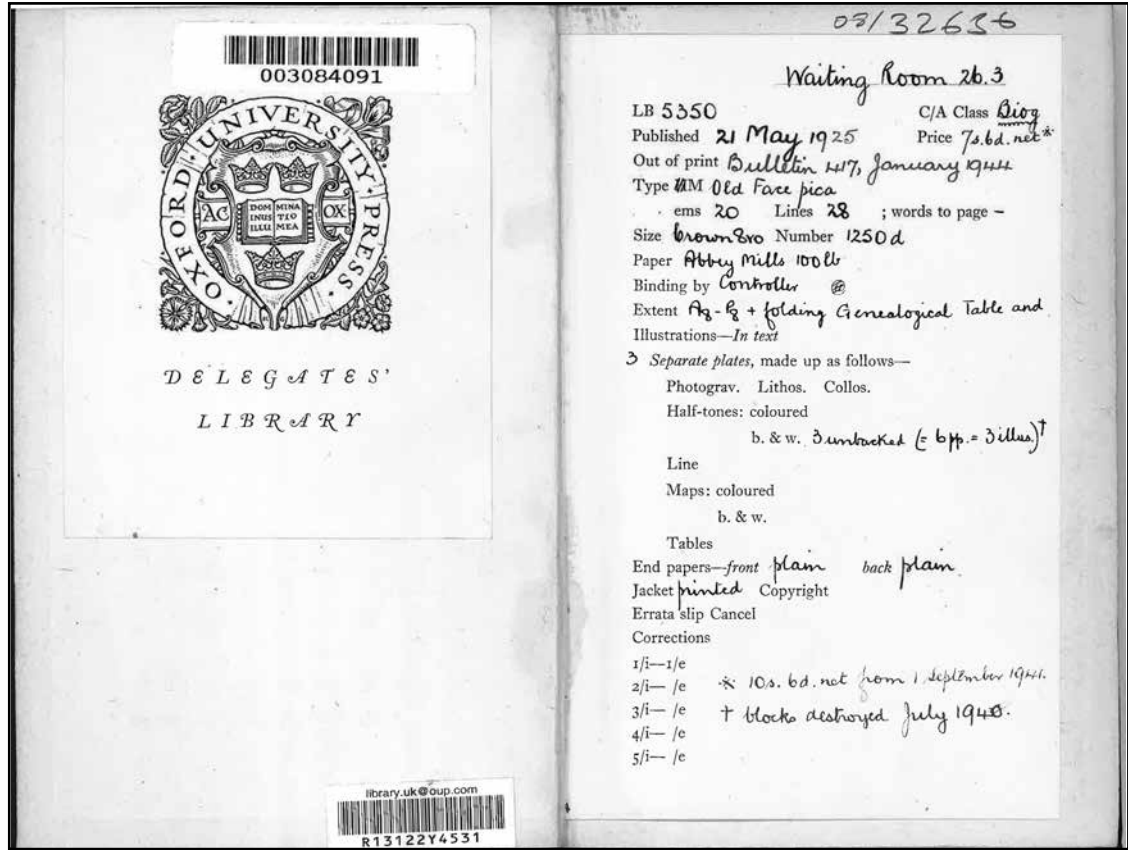 003084091
OXFORD · UNIVERSITY · PRESS ·
AC OX
DOM MINA
INUS TIO
ILLU MEA
DELEGATES'
LIBRARY
library.uk@oup.com
R13122Y4531
03/32636
Waiting Room 26.3
LB 5350 C/A Class Biog
Published 21 May 1925 Price 7s.6d. net*
Out of print Bulletin 417, January 1944
Type Old Face pica
ems 20 Lines 28 ; words to page –
Size Crown 8vo Number 1250 d
Paper Abbey Mills 100 lb
Binding by Controller
Extent + folding Genealogical Table and
Illustrations—In text
3 Separate plates, made up as follows—
Photograv. Lithos. Collos.
Half-tones: coloured
b. & w. 3 unbacked (= 6 pp. = 3 illus.)†
Line
Maps: coloured
b. & w.
Tables
End papers—front plain back plain
Jacket printed Copyright
Errata slip Cancel
Corrections
1/i—1/e
2/i— /e * 10s. 6d. net from 1 September 1941.
3/i— /e † blocks destroyed July 1940.
4/i— /e
5/i— /e